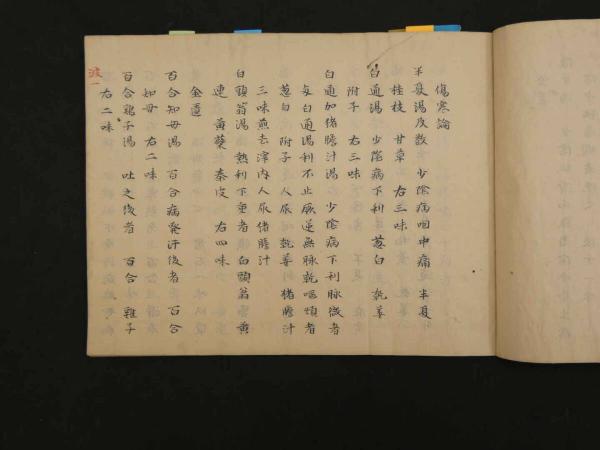 傷寒論
半夏湯及散 少陰病咽中痛 半夏
桂枝 甘草 右三味
白通湯 少陰病下利 葱白 乾姜
附子 右三味
白通加猪膽汁湯 少陰病下利脉微者
与白通湯利不止厥逆無脉乾嘔煩者
葱白 附子 人尿 乾姜 猪膽汁
三味煎去滓内人尿猪膽汁
白頭翁湯 熱利下重者 白頭翁 黄
連 黄蘗 秦皮 右四味
金匱
百合知母湯 百合病発汗後者 百合
知母 右二味
百合鶏子湯 吐之後者 百合 雞子
右二味